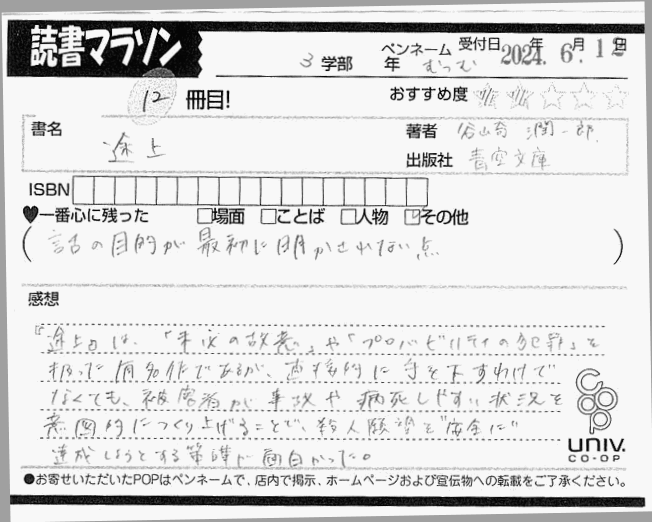 読書マラソン
3 学部 年 ペンネーム むつむ 受付日 2024年 6月 12日
12 冊目!
おすすめ度 ☆☆☆☆☆
書名 途上
著者 谷崎潤一郎
出版社 青空文庫
ISBN
♥一番心に残った □場面 □ことば □人物 ☑その他
(話の目的が最初に明かされない点)
感想
『途上』は、「未必の故意」や「プロバビリティの犯罪」を
扱った有名作であるが、直接的に手を下すわけで
なくても、被害者が事故や病死しやすい状況を
意図的につくり上げることで、殺人願望を"安全に"
達成しようとする策謀が面白かった。
CO-OP
UNIV.
CO-OP
●お寄せいただいたPOPはペンネームで、店内で掲示、ホームページおよび宣伝物への転載をご了承ください。